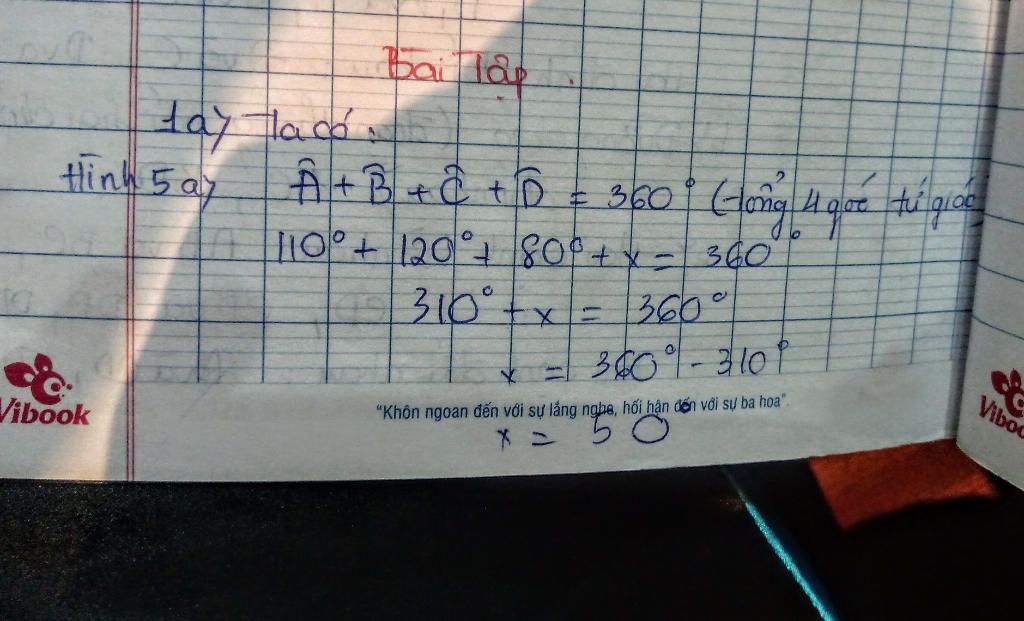 Bài Tập.
1a) Ta có:
Hình 5a) Â + B̂ + Ĉ + D̂ = 360° (tổng 4 góc tứ giác)
110° + 120° + 80° + x = 360°
310° + x = 360°
x = 360° - 310°
"Khôn ngoan đến với sự lắng nghe, hối hận đến với sự ba hoa".
x = 50
Vibook
Viboo